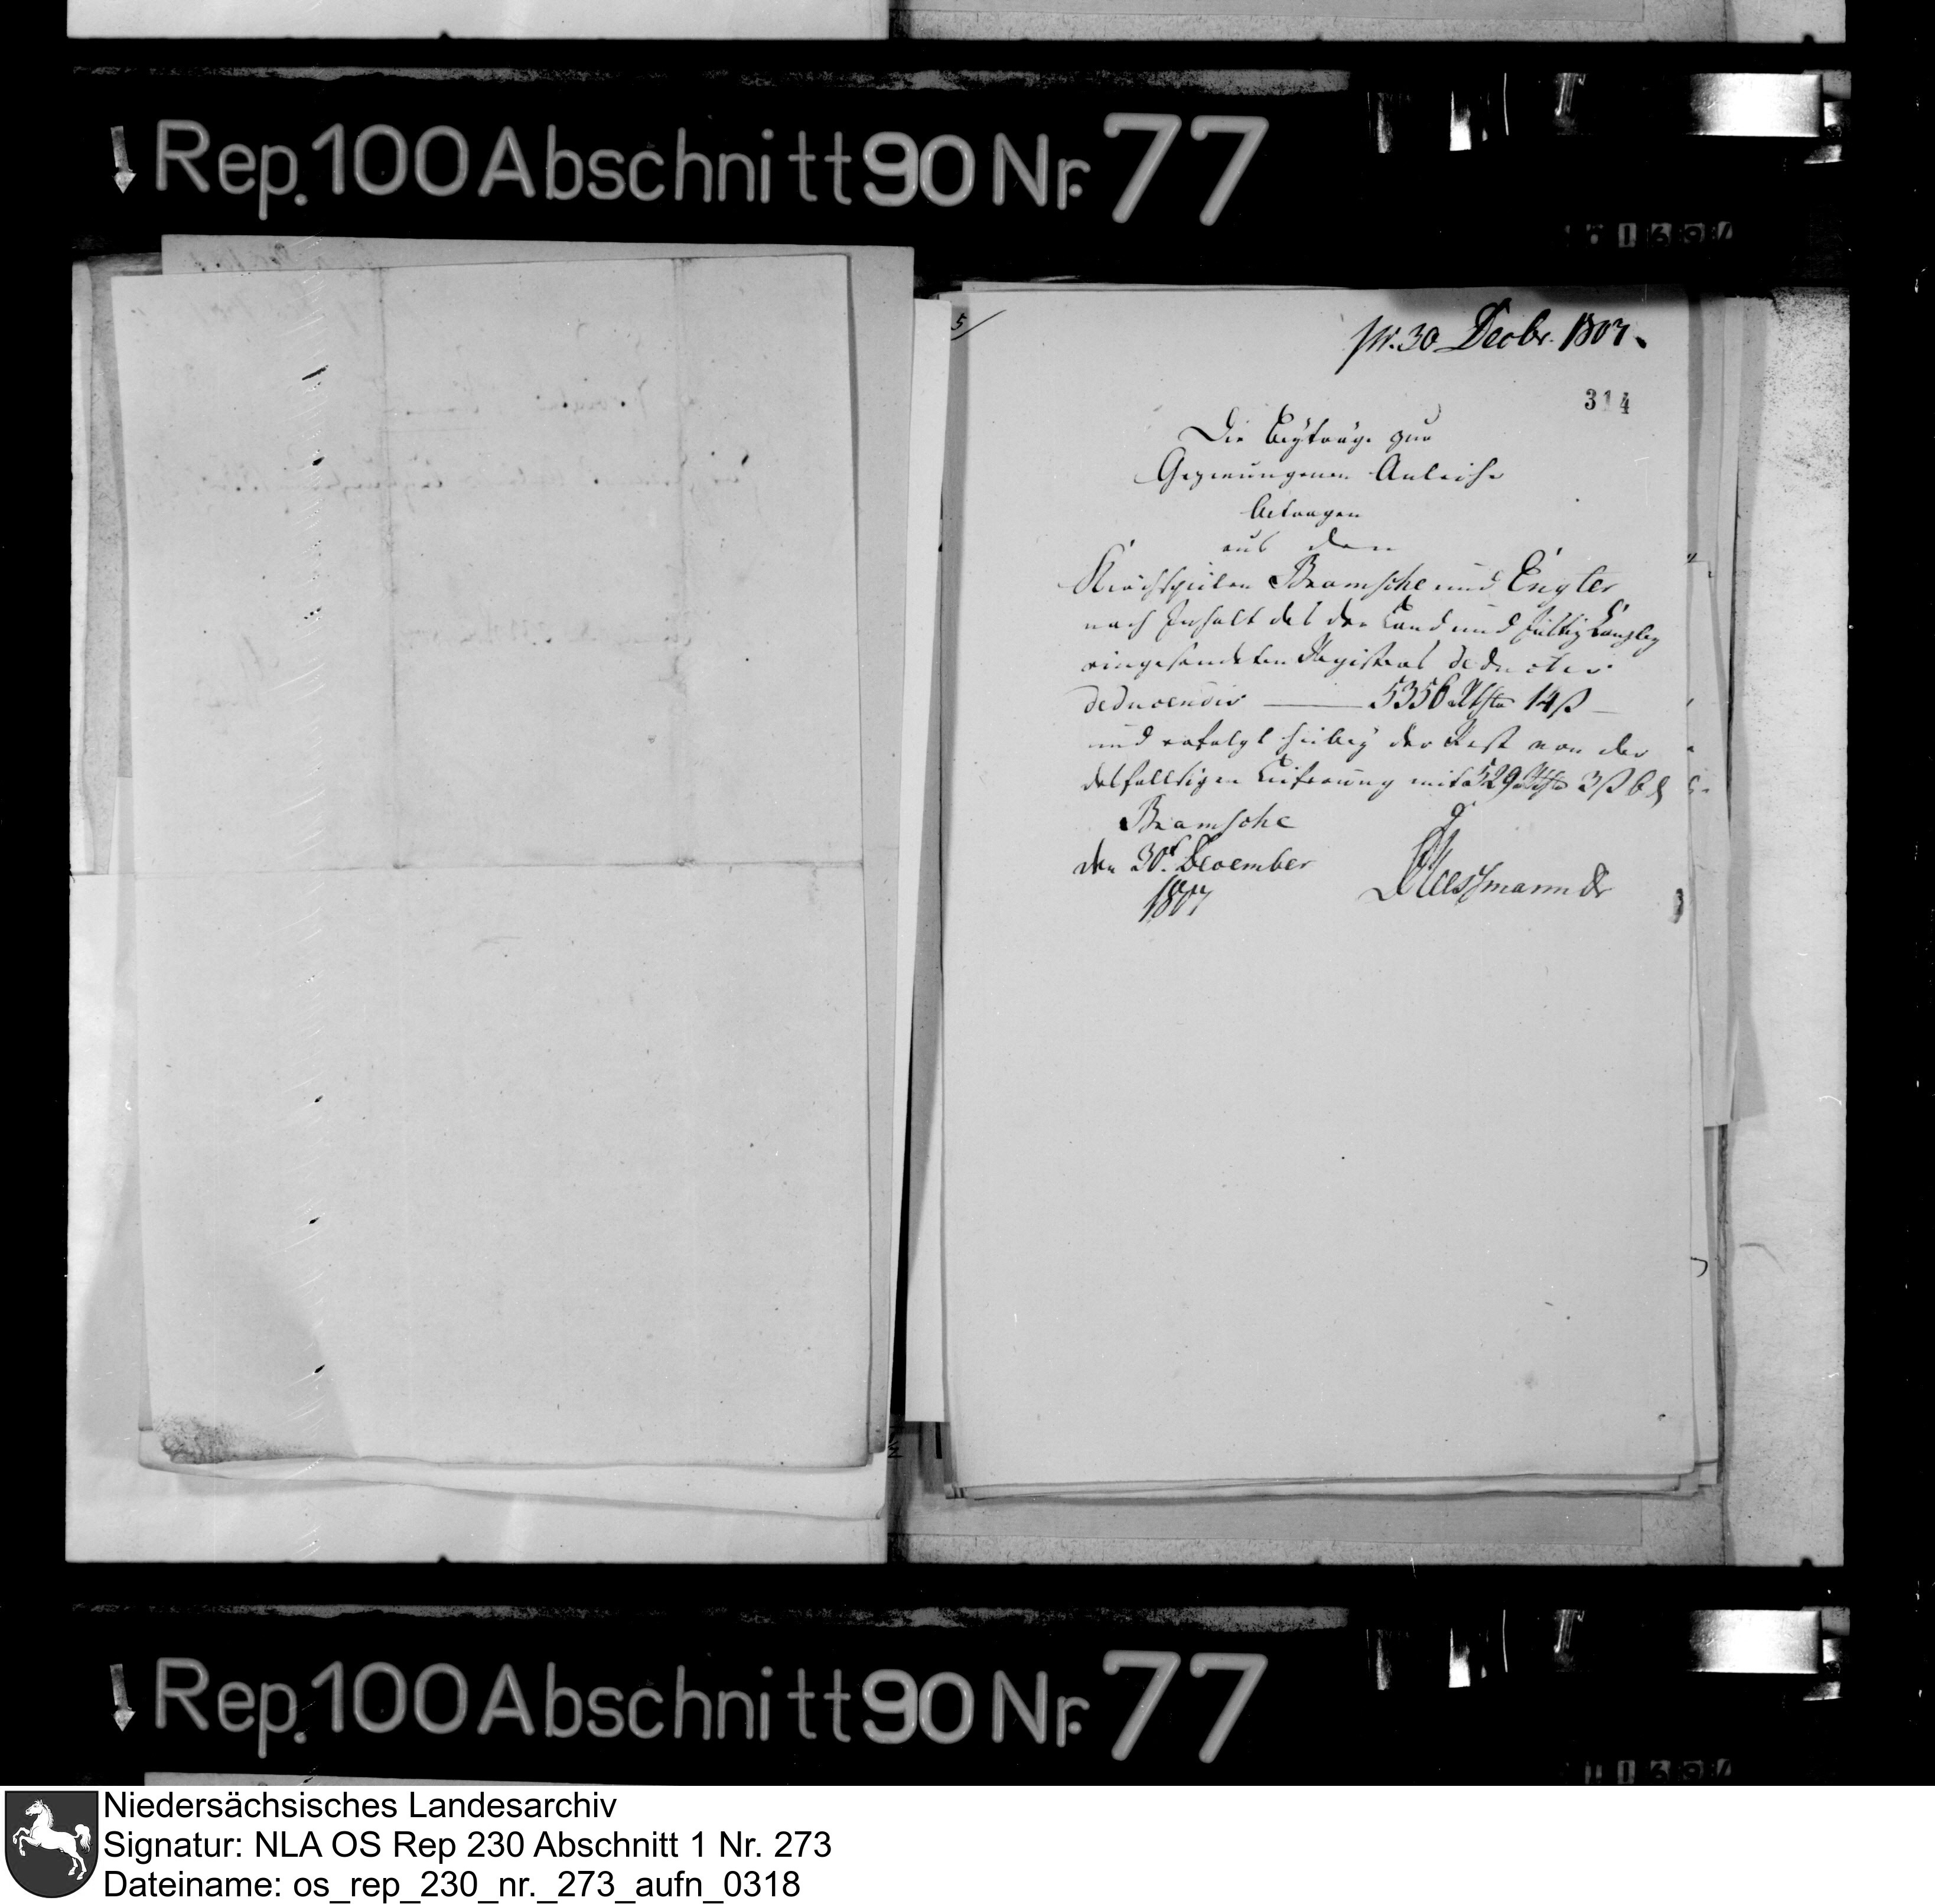 Rep. 100 Abschnitt 90 Nr. 77
5/
pr. 30 Decbr. 1807.
314
Die Beyträge zur
Gezwungenen Anleihe
betragen
aus den
Kirchspielen Bramsche und Engter
nach Inhalt des der Land und Justiz Canzley
eingesandten Registers deductis
deducendis — 5356 Rthlr 14 ß —
und erfolgt hiebey der Rest von der
desfallsigen Lieferung mit 529 Rthlr 3 ß 6 d
Bramsche
den 30t. December
1807
Rep. 100 Abschnitt 90 Nr. 77
Niedersächsisches Landesarchiv
Signatur: NLA OS Rep 230 Abschnitt 1 Nr. 273
Dateiname: os_rep_230_nr._273_aufn_0318